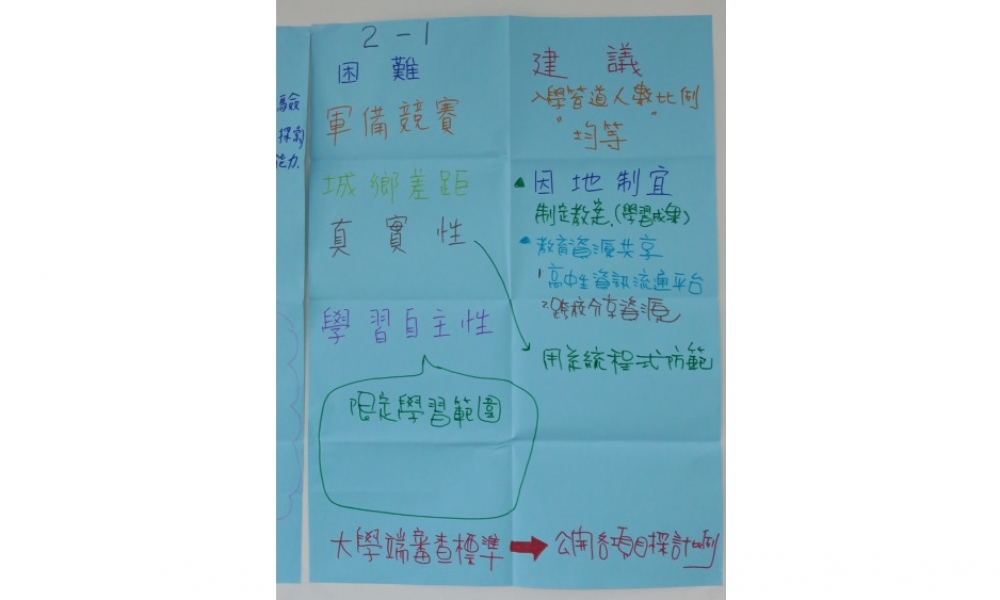 驗
探索
能力
2-1
困難
軍備競賽
城鄉差距
真實性
學習自主性
限定學習範圍
大學端審查標準
建議
入學管道人數比例
"均等"
因地制宜
制定教案.(學習成果)
教育資源共享
1高中生資訊流通平台
2跨校分享資源
用系統程式防範
公開各項目採計比例